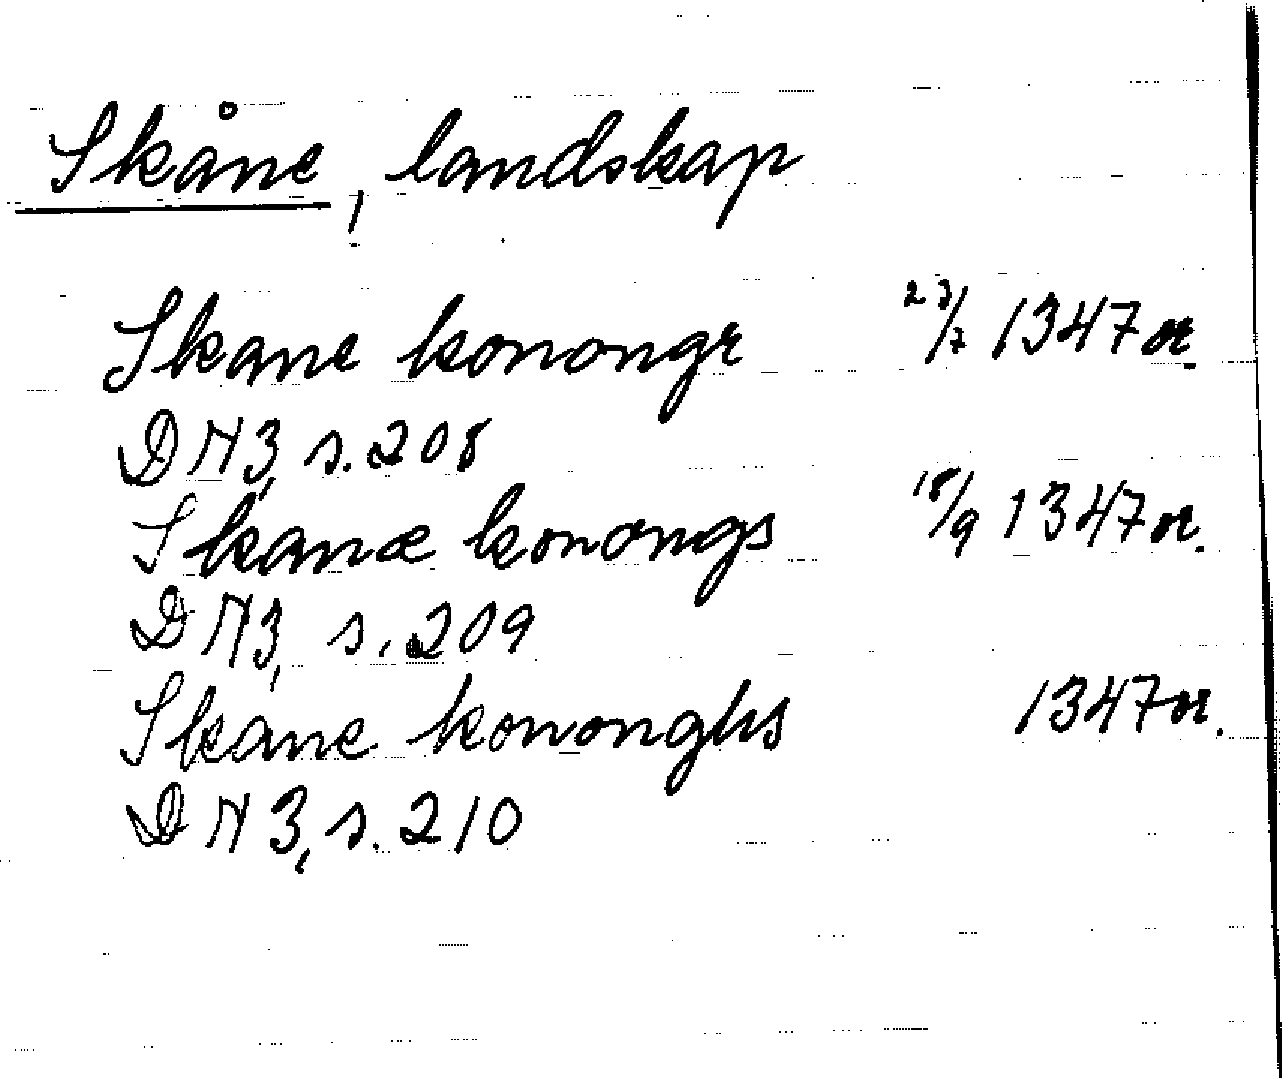 Skåne, landskap
Skane konongr 23/7 1347 or.
DN 3, s. 208
Skanæ konongs 18/9 1347 or.
DN 3, s. 209
Skane kononghs 1347 or.
DN 3, s. 210